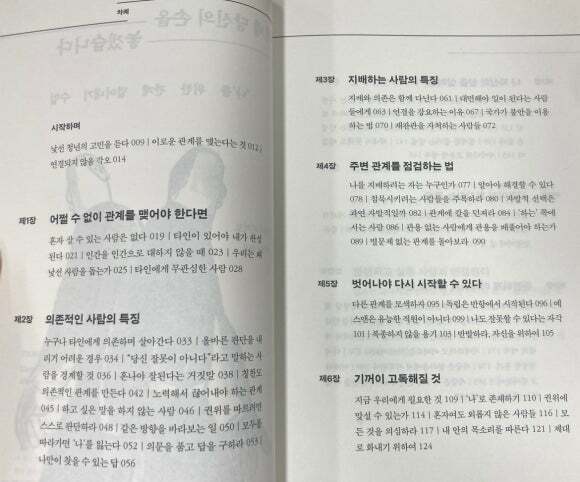 차례
시작하며
낯선 청년의 고민을 듣다 009 | 이로운 관계를 맺는다는 것 012 |
연결되지 않을 각오 014
제1장 어쩔 수 없이 관계를 맺어야 한다면
혼자 살 수 있는 사람은 없다 019 | 타인이 있어야 내가 완성
된다 021 | 인간을 인간으로 대하지 않을 때 023 | 우리는 왜
낯선 사람을 돕는가 025 | 타인에게 무관심한 사람 028
제2장 의존적인 사람의 특징
누구나 타인에게 의존하며 살아간다 033 | 올바른 판단을 내
리기 어려운 경우 034 | “당신 잘못이 아니다”라고 말하는 사
람을 경계할 것 036 | 혼나야 잘된다는 거짓말 038 | 칭찬도
의존적인 관계를 만든다 042 | 노력해서 끊어내야 하는 관계
045 | 하고 싶은 말을 하지 않는 사람 046 | 권위를 따르려면
스스로 판단하라 048 | 같은 방향을 바라보는 일 050 | 모두를
따라가면 ‘나’를 잃는다 052 | 의문을 품고 답을 구하라 053 |
나만이 찾을 수 있는 답 056
제3장 지배하는 사람의 특징
지배와 의존은 함께 다닌다 061 | 대면해야 일이 된다는 사람
들에게 063 | 연결을 강요하는 이유 067 | 국가가 불안을 이용
하는 법 070 | 재판관을 자처하는 사람들 072
제4장 주변 관계를 점검하는 법
나를 지배하려는 자는 누구인가 077 | 알아야 해결할 수 있다
078 | 잠복시키려는 사람들을 주목하라 080 | 자발적 선택은
과연 자발적일까 082 | 관계에 값을 던져라 084 | ‘하는’ 쪽에
서는 사람 086 | 관용 없는 사람에게 관용을 베풀어야 하는가
089 | 빌문제 없는 관계를 돌아보라 090
제5장 벗어나야 다시 시작할 수 있다
다른 관계를 모색하자 095 | 독립은 반항에서 시작된다 096 | 예
스맨은 유능한 직원이 아니다 099 | 나도 잘못할 수 있다는 자각
101 | 복종하지 않을 용기 103 | 반발하라, 자신을 위하여 105
제6장 기꺼이 고독해질 것
지금 우리에게 필요한 것 109 | ‘나’로 존재하기 110 | 권위에
맞설 수 있는가 114 | 혼자여도 외롭지 않은 사람들 116 | 모
든 것을 의심하라 117 | 내 안의 목소리를 따른다 121 | 제대
로 화내기 위하여 124